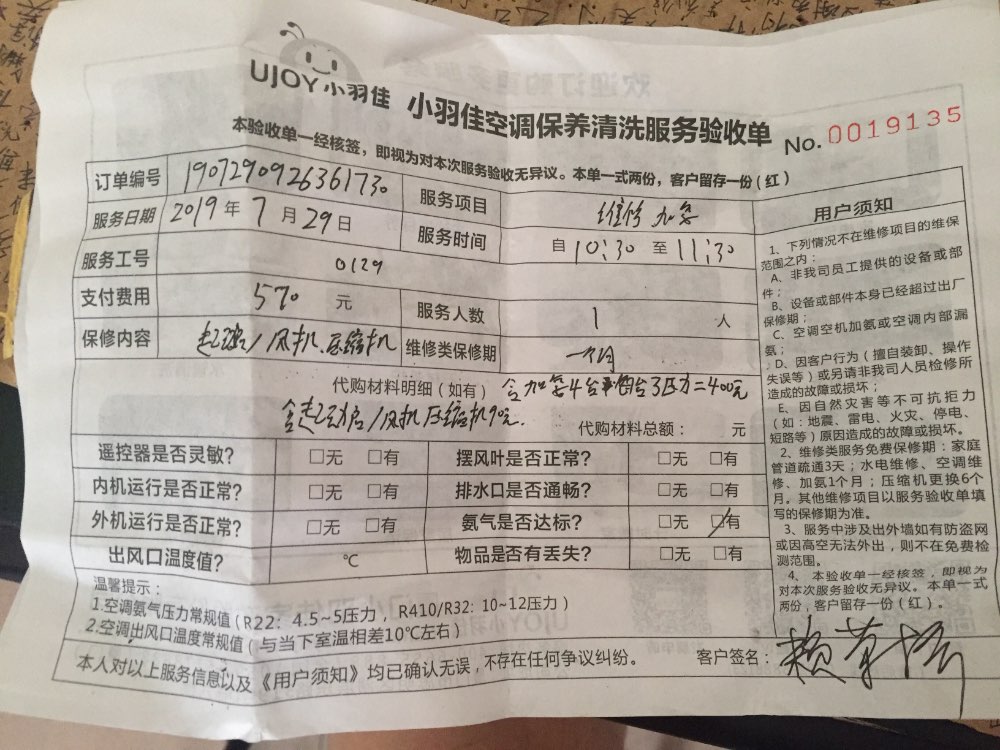 UJOY小羽佳 小羽佳空调保养清洗服务验收单 No. 0019135
本验收单一经核签，即视为对本次服务验收无异议。本单一式两份，客户留存一份(红)
订单编号 190729092636173０ 服务项目 维修 加氨
服务日期 2019 年 7 月 29 日 服务时间 自 10:30 至 11:30
服务工号 0129
支付费用 570 元 服务人数 1 人
保修内容 风机、压缩机 维修类保修期 一个月
代购材料明细(如有) 加氨4台 3压力=400元
风机压缩机 元.
代购材料总额： 元
遥控器是否灵敏? □无 □有 摆风叶是否正常? □无 □有
内机运行是否正常? □无 □有 排水口是否通畅? □无 □有
外机运行是否正常? □无 □有 氨气是否达标? □无 □有
出风口温度值? ℃ 物品是否有丢失? □无 □有
温馨提示：
1.空调氨气压力常规值(R22：4.5~5压力， R410/R32: 10~12压力)
2.空调出风口温度常规值(与当下室温相差10℃左右)
本人对以上服务信息以及《用户须知》均已确认无误，不存在任何争议纠纷。 客户签名：
用户须知
1、下列情况不在维修项目的维保
范围之内：
A、非我司员工提供的设备或部
件；
B、设备或部件本身已经超过出厂
保修期；
C、空调空机加氨或空调内部漏
氨；
D、因客户行为(擅自装卸、操作
失误等)或另请非我司人员检修所
造成的故障或损坏；
E、因自然灾害等不可抗拒力
(如:地震、雷电、火灾、停电、
短路等)原因造成的故障或损坏。
2、维修类服务免费保修期：家庭
管道疏通3天；水电维修、空调维
修、加氨1个月；压缩机更换6个
月。其他维修项目以服务验收单填
写的保修期为准。
3、服务中涉及出外墙如有防盗网
或因高空无法外出，则不在免费检
测范围。
4、本验收单一经核签，即视为
对本次服务验收无异议。本单一式
两份，客户留存一份(红)。